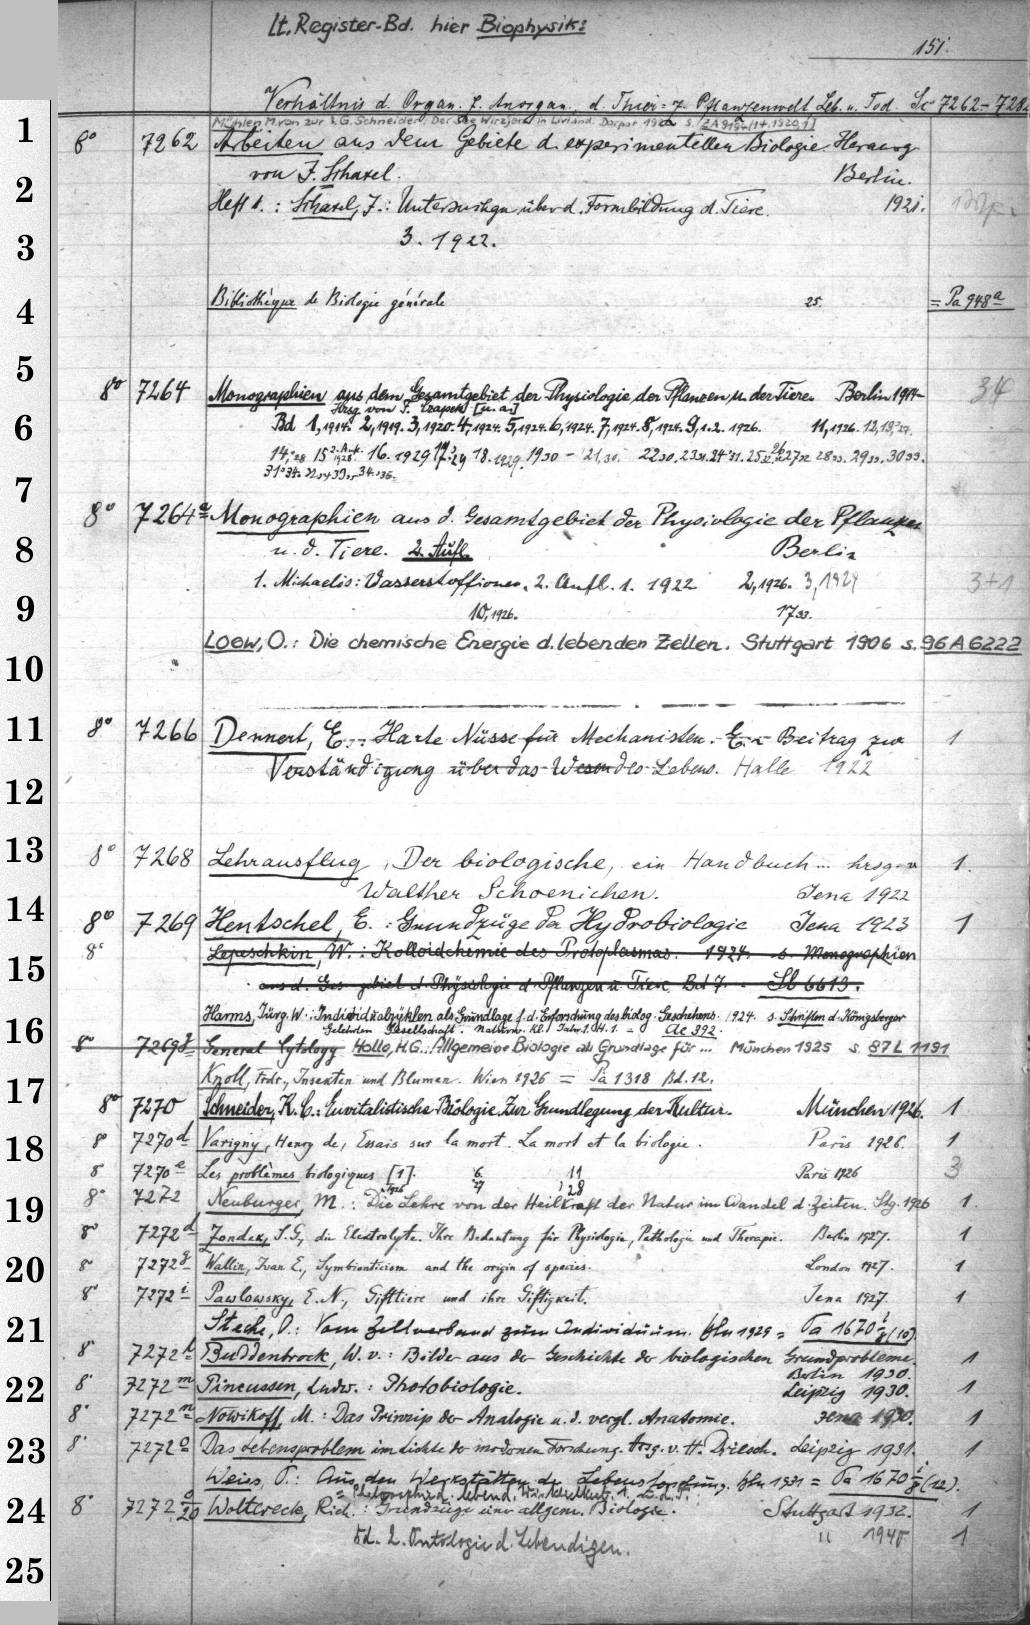 Lt. Register-Bd. hier Biophysik:
151.
Verhältnis d. Organ. z. Anorgan., d. Thier- z. Pflanzenwelt Leb. u. Tod. Sc 7262-728
Mühlen M. von zur u. G. Schneider: Der See Wirzjerw in Livland. Dorpat 1920 s.
1
8° 7262 Arbeiten aus dem Gebiete d. experimentellen Biologie. Herausg
von J. Schaxel. Berlin.
2
Heft 1. : Schaxel, J.: Untersuchgn über d. Formbildung d. Tiere. 1921.
3. 1922.
3
Bibliothèque de Biologie générale 25. = Pa 948a
4
5
8° 7264 Monographien aus dem Gesamtgebiet der Physiologie der Pflanzen u. der Tiere. Berlin 1914- 34
Hrsg. von F. Czapek [u. a.]
6
Bd 1, 1914. 2, 1919. 3, 1920. 4, 1924. 5, 1924. 6, 1924. 7, 1924. 8, 1924. 9, 1.2. 1926. 11, 1926. 12, 13, 27.
14, 28 15 2. Aufl. 1928 16. 1929 17, 29 18. 1929. 19 30 - 21, 30. 22 30. 23 31. 24 31. 25 27 32 28 33. 29 33. 30 33.
31 34.
7
8° 7264a Monographien aus d. Gesamtgebiet der Physiologie der Pflanzen
8
u. d. Tiere. 2. Aufl. Berlin
1. Michaelis: Wasserstoffionen. 2. Aufl. 1. 1922 2, 1926. 3, 1929 3+1
9
10, 1926. 17 33.
Loew, O.: Die chemische Energie d. lebenden Zellen. Stuttgart 1906 s. 96 A 6222
10
11
8° 7266 Dennert, E.: Harte Nüsse für Mechanisten. Ein Beitrag zur 1
Verständigung über das Wesen des Lebens. Halle 1922
12
13
8° 7268 Lehrausflug, Der biologische, ein Handbuch... hrsg. v 1.
Walther Schoenichen. Jena 1922
14
8° 7269 Hentschel, E. : Grundzüge der Hydrobiologie Jena 1923 1
8° Lepeschkin, W. : Kolloidchemie des Protoplasmas. 1924. s. Monographien
15
aus d. Gesamtgebiet d. Physiologie d. Pflanzen u. Tiere. Bd 7. - Sb 6613.
Harms, Jürg. W.: Individualzyklen als Grundlage f. d. Erforschung des biolog. Geschehens. 1924. s. Schriften d. Königsberger
16
Gelehrten Gesellschaft. Naturw. Kl. Jahr 1. H. 1. = Ac 392.
8° 7269g General Cytology Hollo, H.G.: Allgemeine Biologie als Grundlage für ... München 1925 s. 87 L 1191
Knoll, Frdr., Insekten und Blumen. Wien 1926 = Pa 1318 Bd. 12.
17
8° 7270 Schneider, K. C.: Euvitalistische Biologie. Zur Grundlegung der Kultur. München 1926. 1
18
8° 7270d Varigny, Henry de, Essais sur la mort. La mort et la biologie. Paris 1926. 1
8° 7270e Les problèmes biologiques [1]. 6. 11 Paris 1926 3
1926 7 28
19
8° 7272 Neuburger, M. : Die Lehre von der Heilkraft der Natur im Wandel d. Zeiten. Stg. 1926 1.
8° 7272d Zondek, S.G., die Elektrolyte. Ihre Bedeutung für Physiologie, Pathologie und Therapie. Berlin 1927. 1
20
8° 7272g Wallin, Ivan E., Symbionticism and the origin of species. London 1927. 1
8° 7272i Pawlowsky, E. N., Gifttiere und ihre Giftigkeit. Jena 1927 1
21
Steche, O.: Vom Zellverband zum Individuum. Bln 1929 = Pa 1670 (10).
8° 7272l Buddenbrock, W. v. : Bilder aus der Geschichte der biologischen Grundprobleme. 1
Berlin 1930.
22
8° 7272m Pincussen, Ludw. : Photobiologie. Leipzig 1930. 1
8° 7272n Nowikoff, M. : Das Prinzip der Analogie u. d. vergl. Anatomie. Jena 1930. 1
23
8° 7272o Das Lebensproblem im Lichte der modernen Forschung. Hrsg. v. H. Driesch. Leipzig 1931. 1
Weiss, P.: Aus den Werkstätten der Lebensforschung. Bln 1931 = Pa 1670 (12).
= Philosophie d. lebend. Wirklichkeit. 1.
24
8° 7272 Woltereck, Rich. : Grundzüge einer allgem. Biologie. Stuttgart 1932. 1
Bd. 2. Ontologie d. Lebendigen. " 1940 1
25